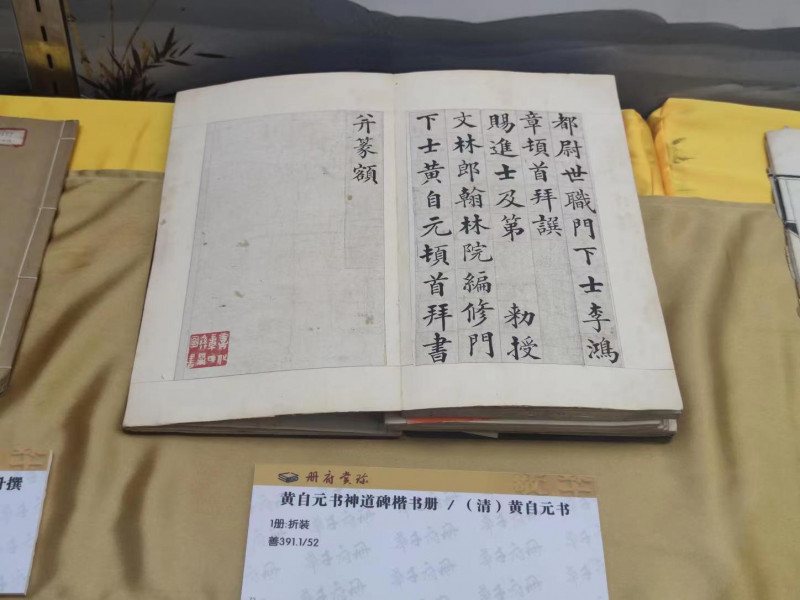 都尉世職門下士李鴻
章頓首拜譔
賜進士及第 勅授
文林郎翰林院編修門
下士黃自元頓首拜書
并篆額
册府賞珍
黄自元书神道碑楷书册 / （清）黄自元书
1册:折装
善391.1/52
撰